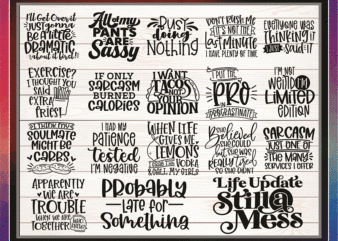 I'll Get Over it
I Just gonna
Be a little
DRAMATIC
about it first!
All my
PANTS
ARE
Sassy
Just
doing
Nothing
DON'T RUSH ME
IT'S NOT THE
Last
Minute
I HAVE PLENTY OF TIME
EVERYONE WAS
THINKING IT
I Just Said it
EXERCISE?
I THOUGHT YOU
SAID
EXTRA
FRIES!
IF ONLY
SARCASM
BURNED
CALORIES
I WANT
TACOS
NOT YOUR
OPINION
I PUT THE
PRO
IN
PROCRASTINATE
I'M NOT
WEIRD I'M
LIMITED
EDITION
MY
SOULMATE
MIGHT BE
CARBS
I HAD MY
PATIENCE
tested
I'M NEGATIVE
WHEN LIFE
GIVES ME
LEMONS
VODKA
& CALL MY GIRLS
She
Believed
SHE COULD
BUT SHE WAS
Really Tired
SO SHE DIDN'T
SARCASM
JUST ONE OF
THE MANY
SERVICES I OFFER
APPARENTLY
WE ARE
TROUBLE
WHEN WE ARE
TOGETHER
PRObABLY
LATE FOR
Something
Life Update
Still a
Mess